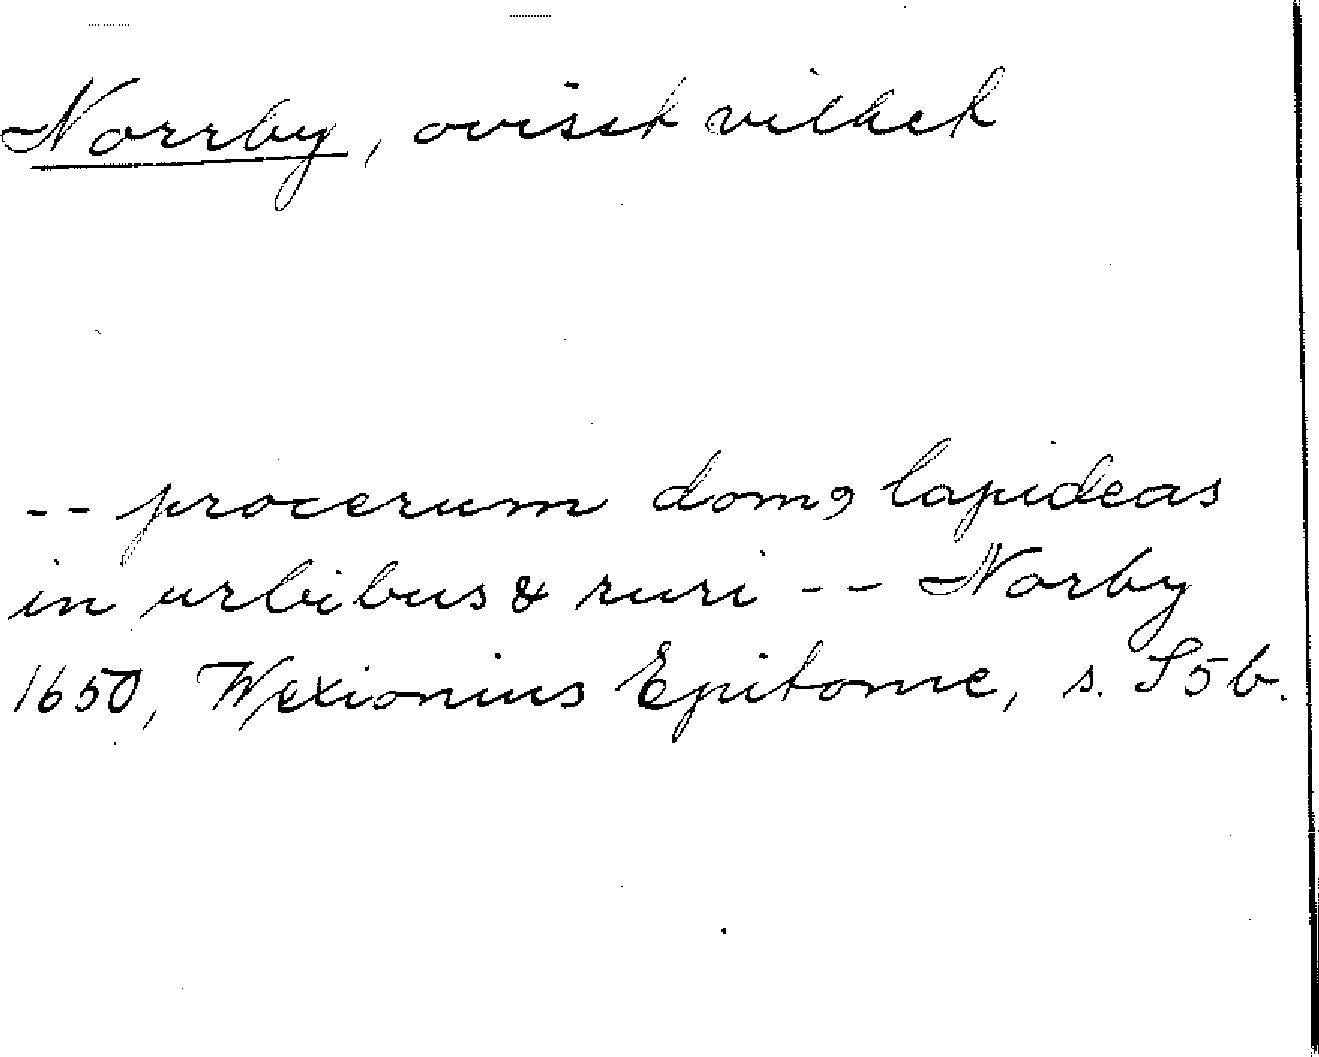 Norrby, ovisst vilket
-- procerum domꝯ lapideas
in urbibus & ruri -- Norby
1650, Wexionius Epitome, s. S5b.